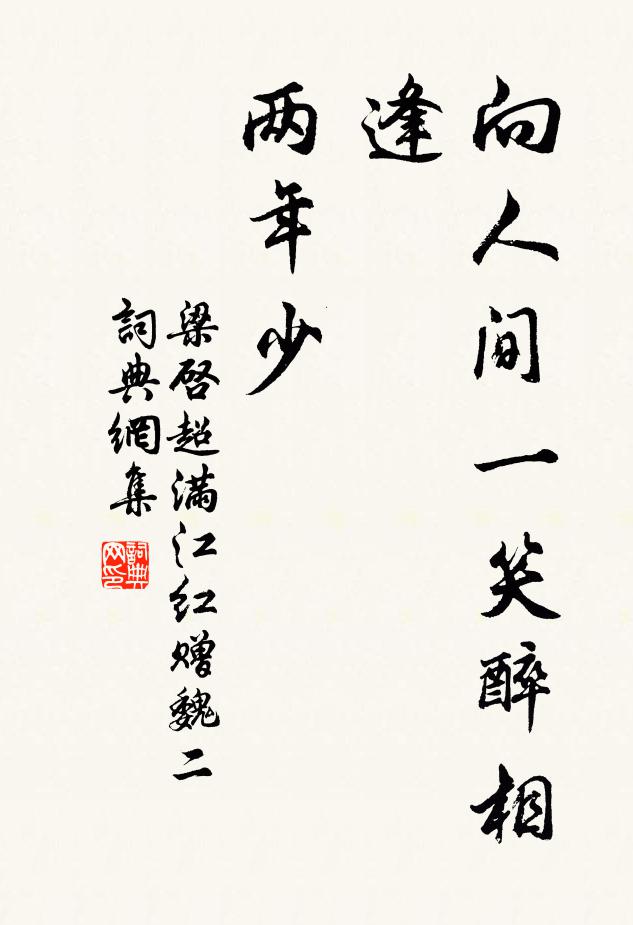 向人间一笑醉相
逢
两年少
梁启超满江红赠魏二
詞典網集
詞典
网印